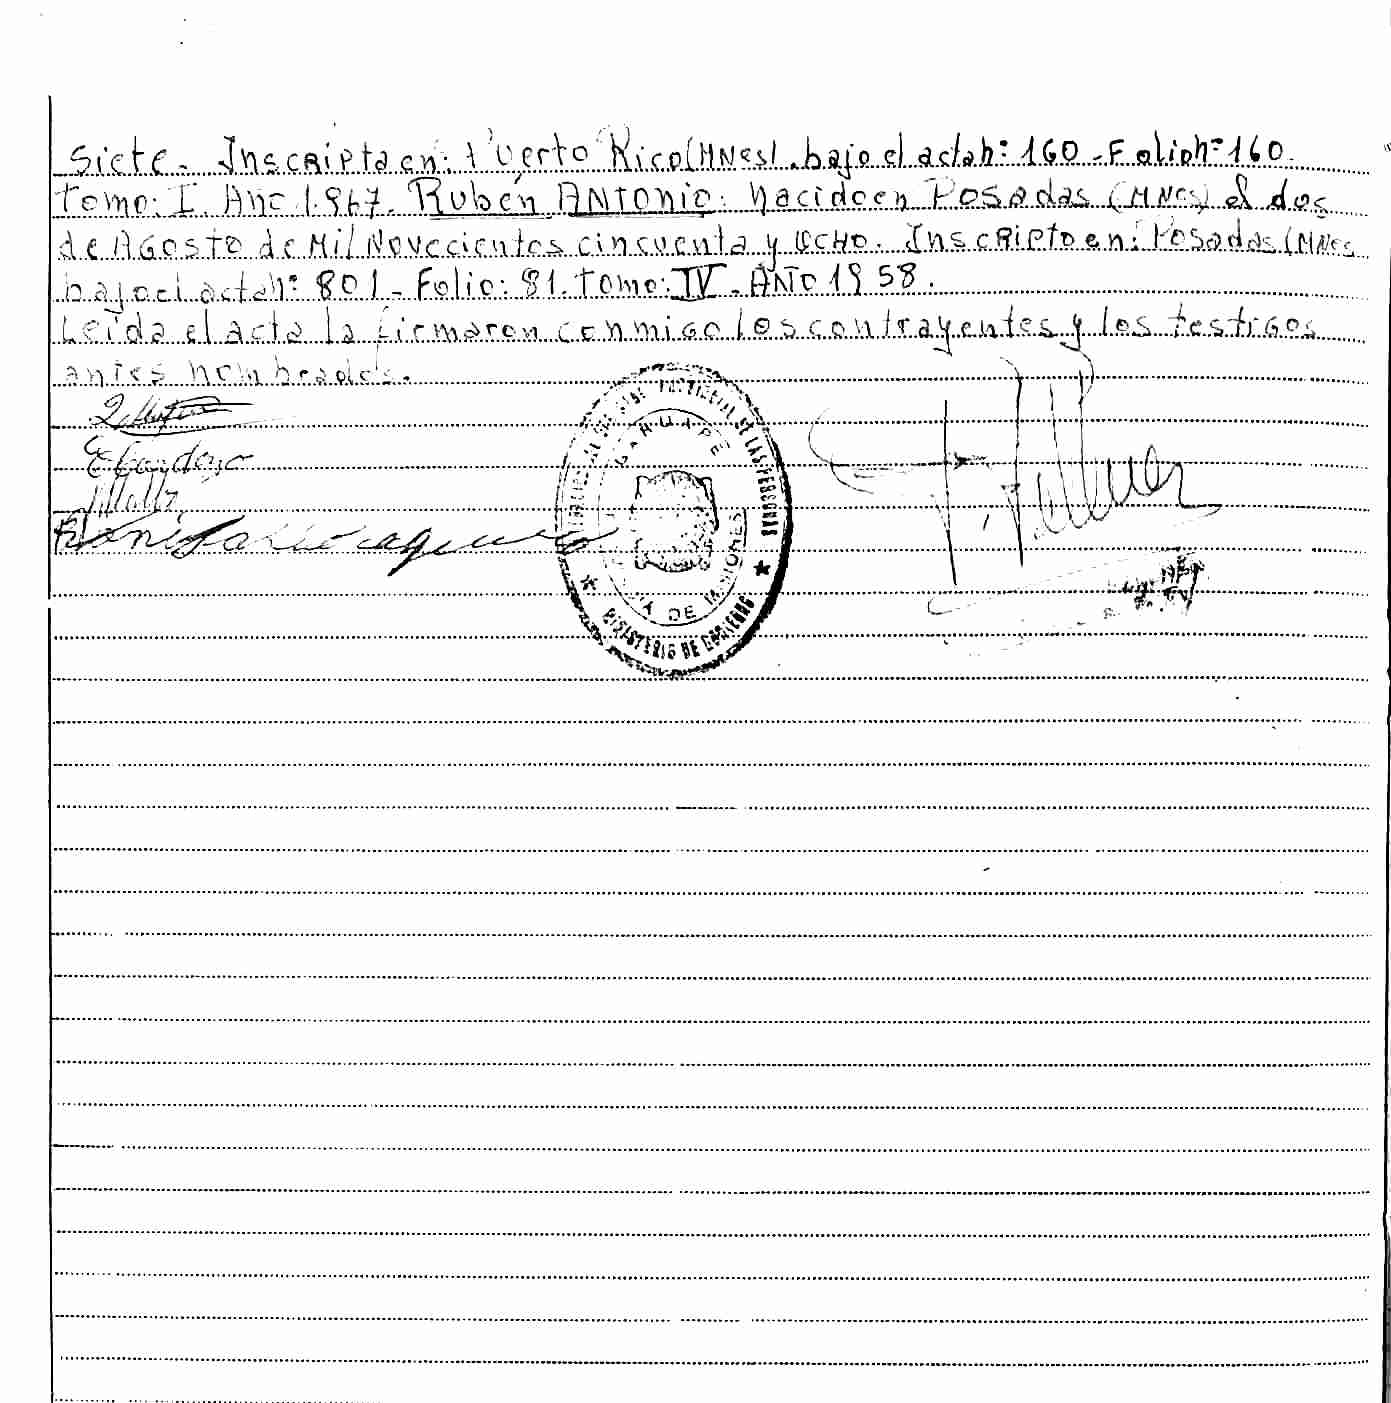 Siete. Inscripta en: Puerto Rico (MNes). bajo el acta nº: 160 - Folio nº 160.
Tomo: I. Año 1.967. Rubén ANTONIO: nacido en Posadas (MNes) el dos
de AGosto de Mil Novecientos cincuenta y OCHO. Inscripto en: Posadas (MNes
bajo el acta nº: 801 - Folio: 81. Tomo: IV - AÑO 1958.
Leída el acta la firmaron conmigo los contrayentes y los testigos
antes nombrados.
PROVINCIAL DE LAS PERSONAS
GARUAPE
DE MISIONES
MINISTERIO DE GOBIERNO